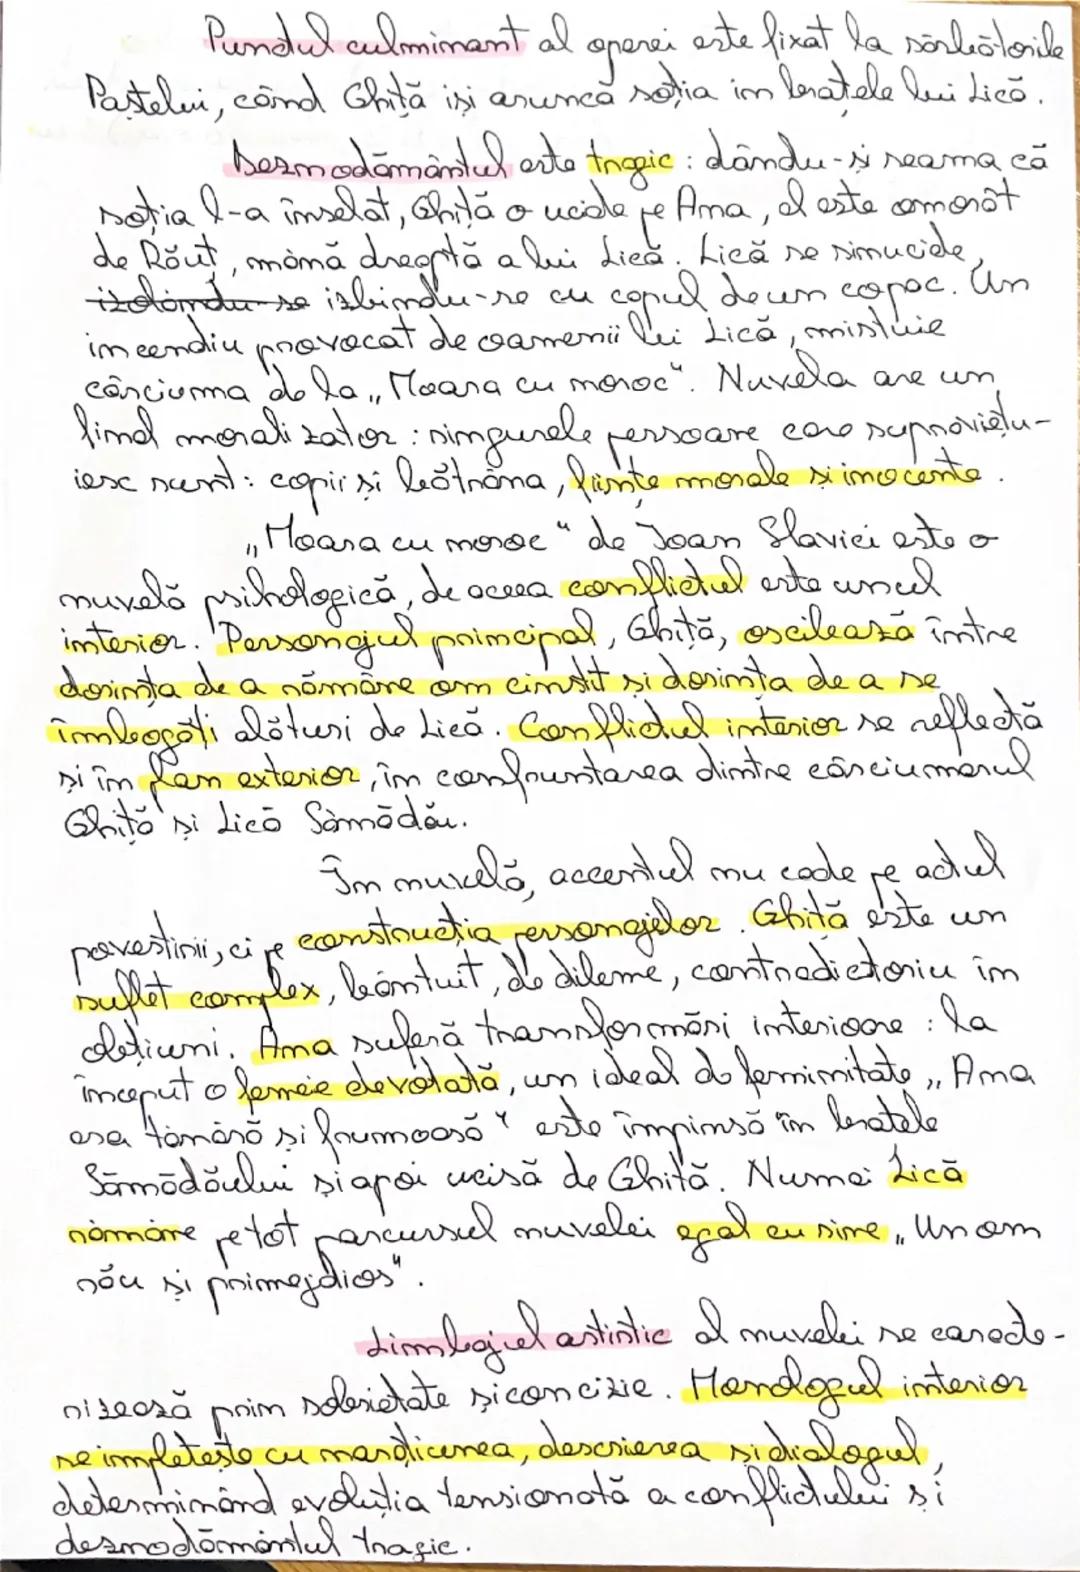 Punctul culminant al operei este fixat la sărbătorile
Paștelui, când Ghiță își aruncă soția în brațele lui Lică.
Deznodământul este tragic : dându-și seama că
soția l-a înșelat, Ghiță o ucide pe Ana, el este omorât
de Răuț, mână dreaptă a lui Lică. Lică se sinucide,
izolându-se izbindu-se cu capul de un copac. Un
incendiu provocat de oamenii lui Lică, mistuie
cârciuma de la „Moara cu noroc". Nuvela are un
final moralizator : singurele persoane care supraviețu-
iesc sunt : copii și bătrâna, ființe morale și inocente.
„Moara cu noroc" de Ioan Slavici este o
nuvelă psihologică, de aceea conflictul este unul
interior. Personajul principal, Ghiță, oscilează între
dorința de a rămâne om cinstit și dorința de a se
îmbogăți alături de Lică. Conflictul interior se reflectă
și în plan exterior, în confruntarea dintre cârciumarul
Ghiță și Lică Sămădău.
În nuvelă, accentul nu cade pe actul
povestirii, ci pe construcția personajelor. Ghiță este un
suflet complex, bântuit, de dileme, contradictoriu în
acțiuni. Ana suferă transformări interioare : la
început o femeie devotată, un ideal de feminitate „Ana
era tânără și frumoasă" este împinsă în brațele
Sămădăului și apoi ucisă de Ghiță. Numai Lică
rămâne pe tot parcursul nuvelei egal cu sine „Un om
rău și primejdios".
Limbajul artistic al nuvelei se caracte-
rizează prin sobrietate și concizie. Monologul interior
se împletește cu narațiunea, descrierea și dialogul,
determinând evoluția tensionată a conflictului și
deznodământul tragic.